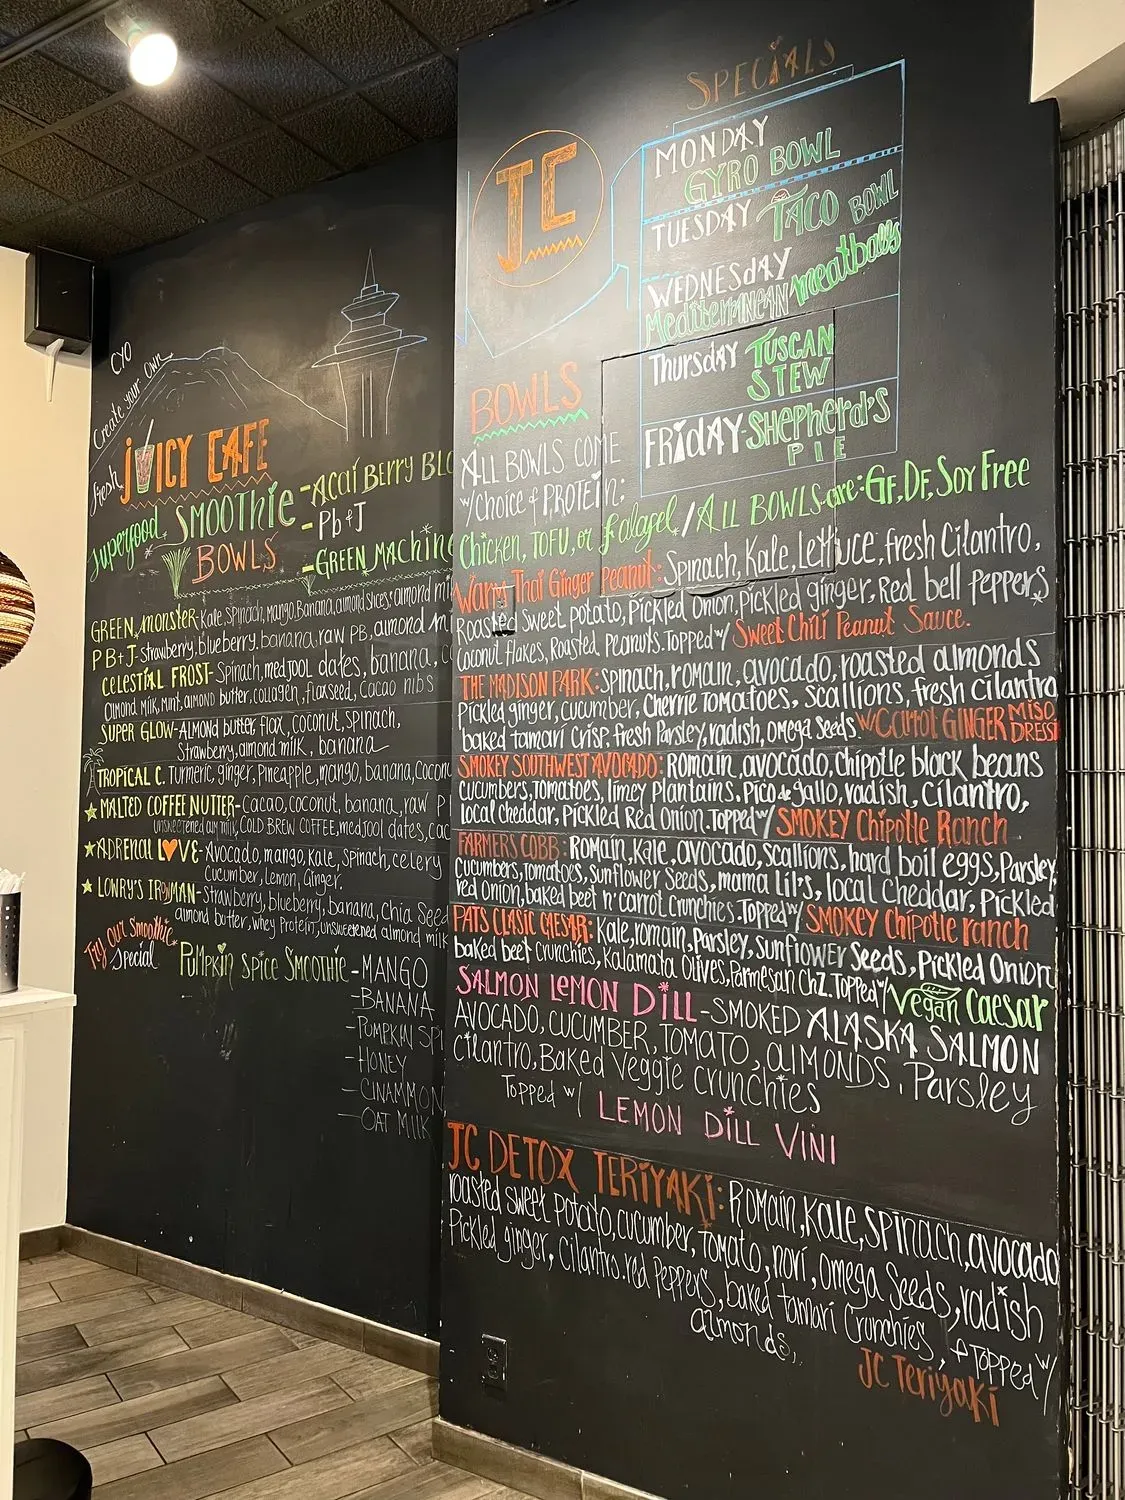 CYO
Create your Own
fresh JUICY CAFE
superfood SMOOTHIE
BOWLS
-ACAI BERRY BLO
-Pb+J
-GREEN MACHINE
GREEN MONSTER-Kale, Spinach, Mango, Banana, almond slices, almond mi
PB+J-strawberry, blueberry, banana, raw PB, almond m
CELESTIAL FROST-Spinach, medjool dates, banana, co
Almond Milk, mint, almond butter, collagen, flaxseed, Cacao nibs
SUPER GLOW-Almond butter, flax, coconut, spinach,
Strawberry, almond milk, banana
TROPICAL C. Turmeric, ginger, Pineapple, mango, banana, coconu
MALTED COFFEE NUTTER-Cacao, coconut, banana, raw P
unsweetened alm milk, COLD BREW COFFEE, medjool dates, cac
ADRENAL LOVE-Avocado, mango, kale, Spinach, celery
Cucumber, Lemon, Ginger.
LOWRY'S IRONMAN-Strawberry, blueberry, banana, Chia Seed
almond butter, whey Protein, unsweetened almond milk
Try Our Smoothie
Special
PUMPKIN SPICE SMOOTHIE-MANGO
-BANANA
-PUMPKIN SPI
-HONEY
-CINAMMON
-OAT MILK
JC
SPECIALS
MONDAY
GYRO BOWL
TUESDAY TACO BOWL
WEDNESdAY
MediterrANEAN meatballs
Thursday TUSCAN
STEW
FRIDAY-SHEPHERd'S
PIE
BOWLS
ALL BOWLS COME
w/Choice of PROTEIN:
Chicken, TOFU, or falafel/ALL BOWLS are: GF, DF, Soy Free
Warm Thai Ginger Peanut: Spinach, Kale, Lettuce, fresh Cilantro,
Roasted Sweet potato, Pickled Onion, pickled ginger, Red bell peppers
Coconut flakes, Roasted Peanuts. Topped w/ Sweet Chili Peanut Sauce.
THE MADISON PARK: Spinach, romain, avocado, roasted almonds
Pickled ginger, cucumber, Cherrie Tomatoes, Scallions, fresh Cilantro
baked tamari Crisp, fresh Parsley, radish, omega Seeds. w CAMOL GINGER MISO
DRESSI
SMOKEY SOUTHWEST AVOCADO: Romain, avocado, Chipotle black beans
Cucumbers, Tomatoes, limey Plantains, Pico de gallo, radish, Cilantro,
local cheddar, Pickled Red Onion. Topped w/ SMOKEY Chipotle Ranch
FARMERS COBB: Romain, Kale, avocado, scallions, hard boil eggs, Parsley
Cucumbers, tomatoes, Sunflower Seeds, mama lil's, local Cheddar, Pickled
red Onion, baked beet n' carrot crunchies. Topped w/ SMOKEY Chipotle ranch
PATS CLASIC CAESAR: Kale, romain, Parsley, Sunflower Seeds, Pickled Onion,
baked beet Crunchies, Kalamata Olives, Parmesan Chz. Topped w/ Vegan Caesar
SALMON LEMON DILL-SMOKED ALASKA SALMON
AVOCADO, CUCUMBER, TOMATO, ALMONDS, Parsley
Cilantro, Baked Veggie Crunchies
Topped w/ LEMON DILL VINI
JC DETOX TERIYAKI: Romain, Kale, Spinach, avocado
roasted sweet Potato, cucumber, Tomato, nori, omega Seeds, radish
Pickled ginger, Cilantro. red Peppers, baked tamari Crunchies, + Topped w/
almonds,
JC Teriyaki